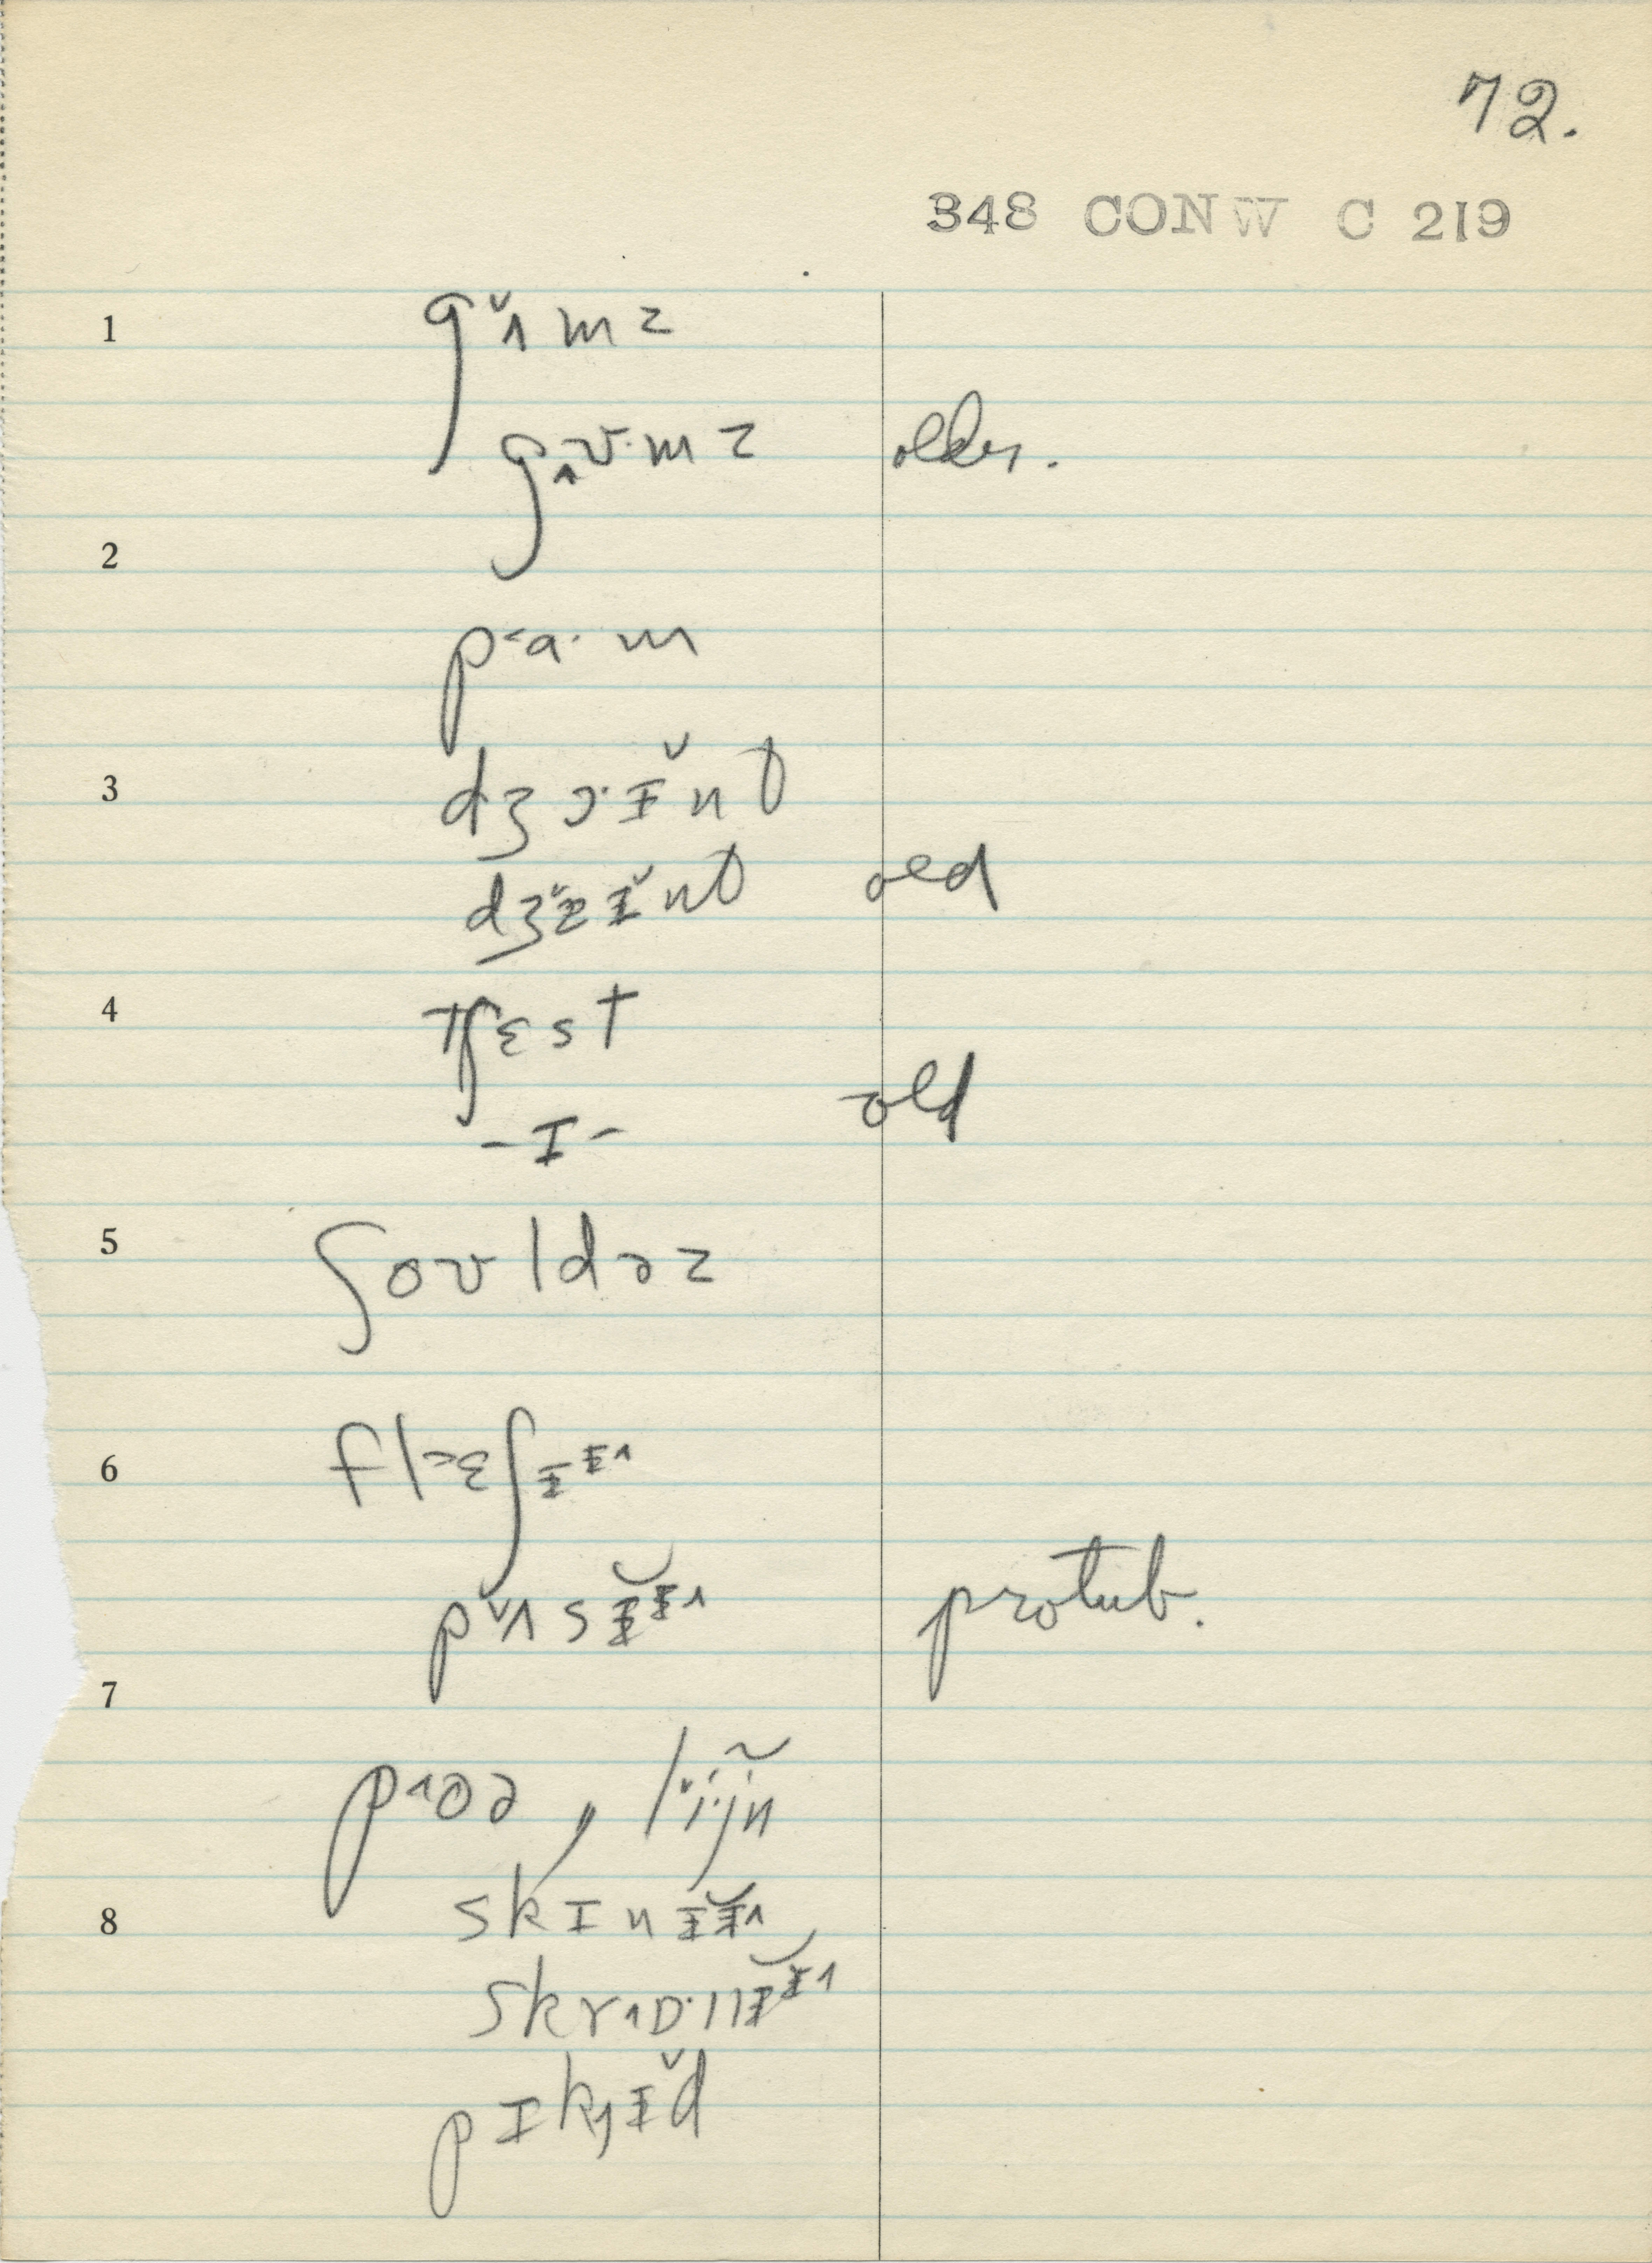 72.
348 CONW C 219
1 g ̌ʌmz
gʌʊ·mz older.
2
p˂a·m
3 dʒɔ·ɨ̌nt
dʒɨ̌nt old
4 tʃɛst
-I- old
5 ʃoʊldəz
6 fl˃ɛʃɨ
pʌsɨ protub.
7
poə, lijn
8 skɪnɨ
skrɒ·nɨ
pɪkɨ̌d